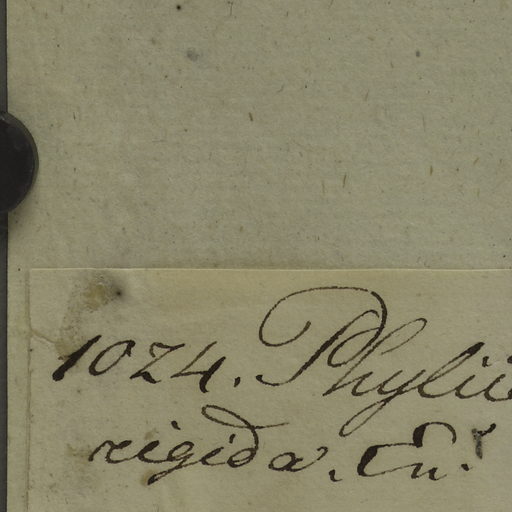 1024. Phylic
rigida. En.